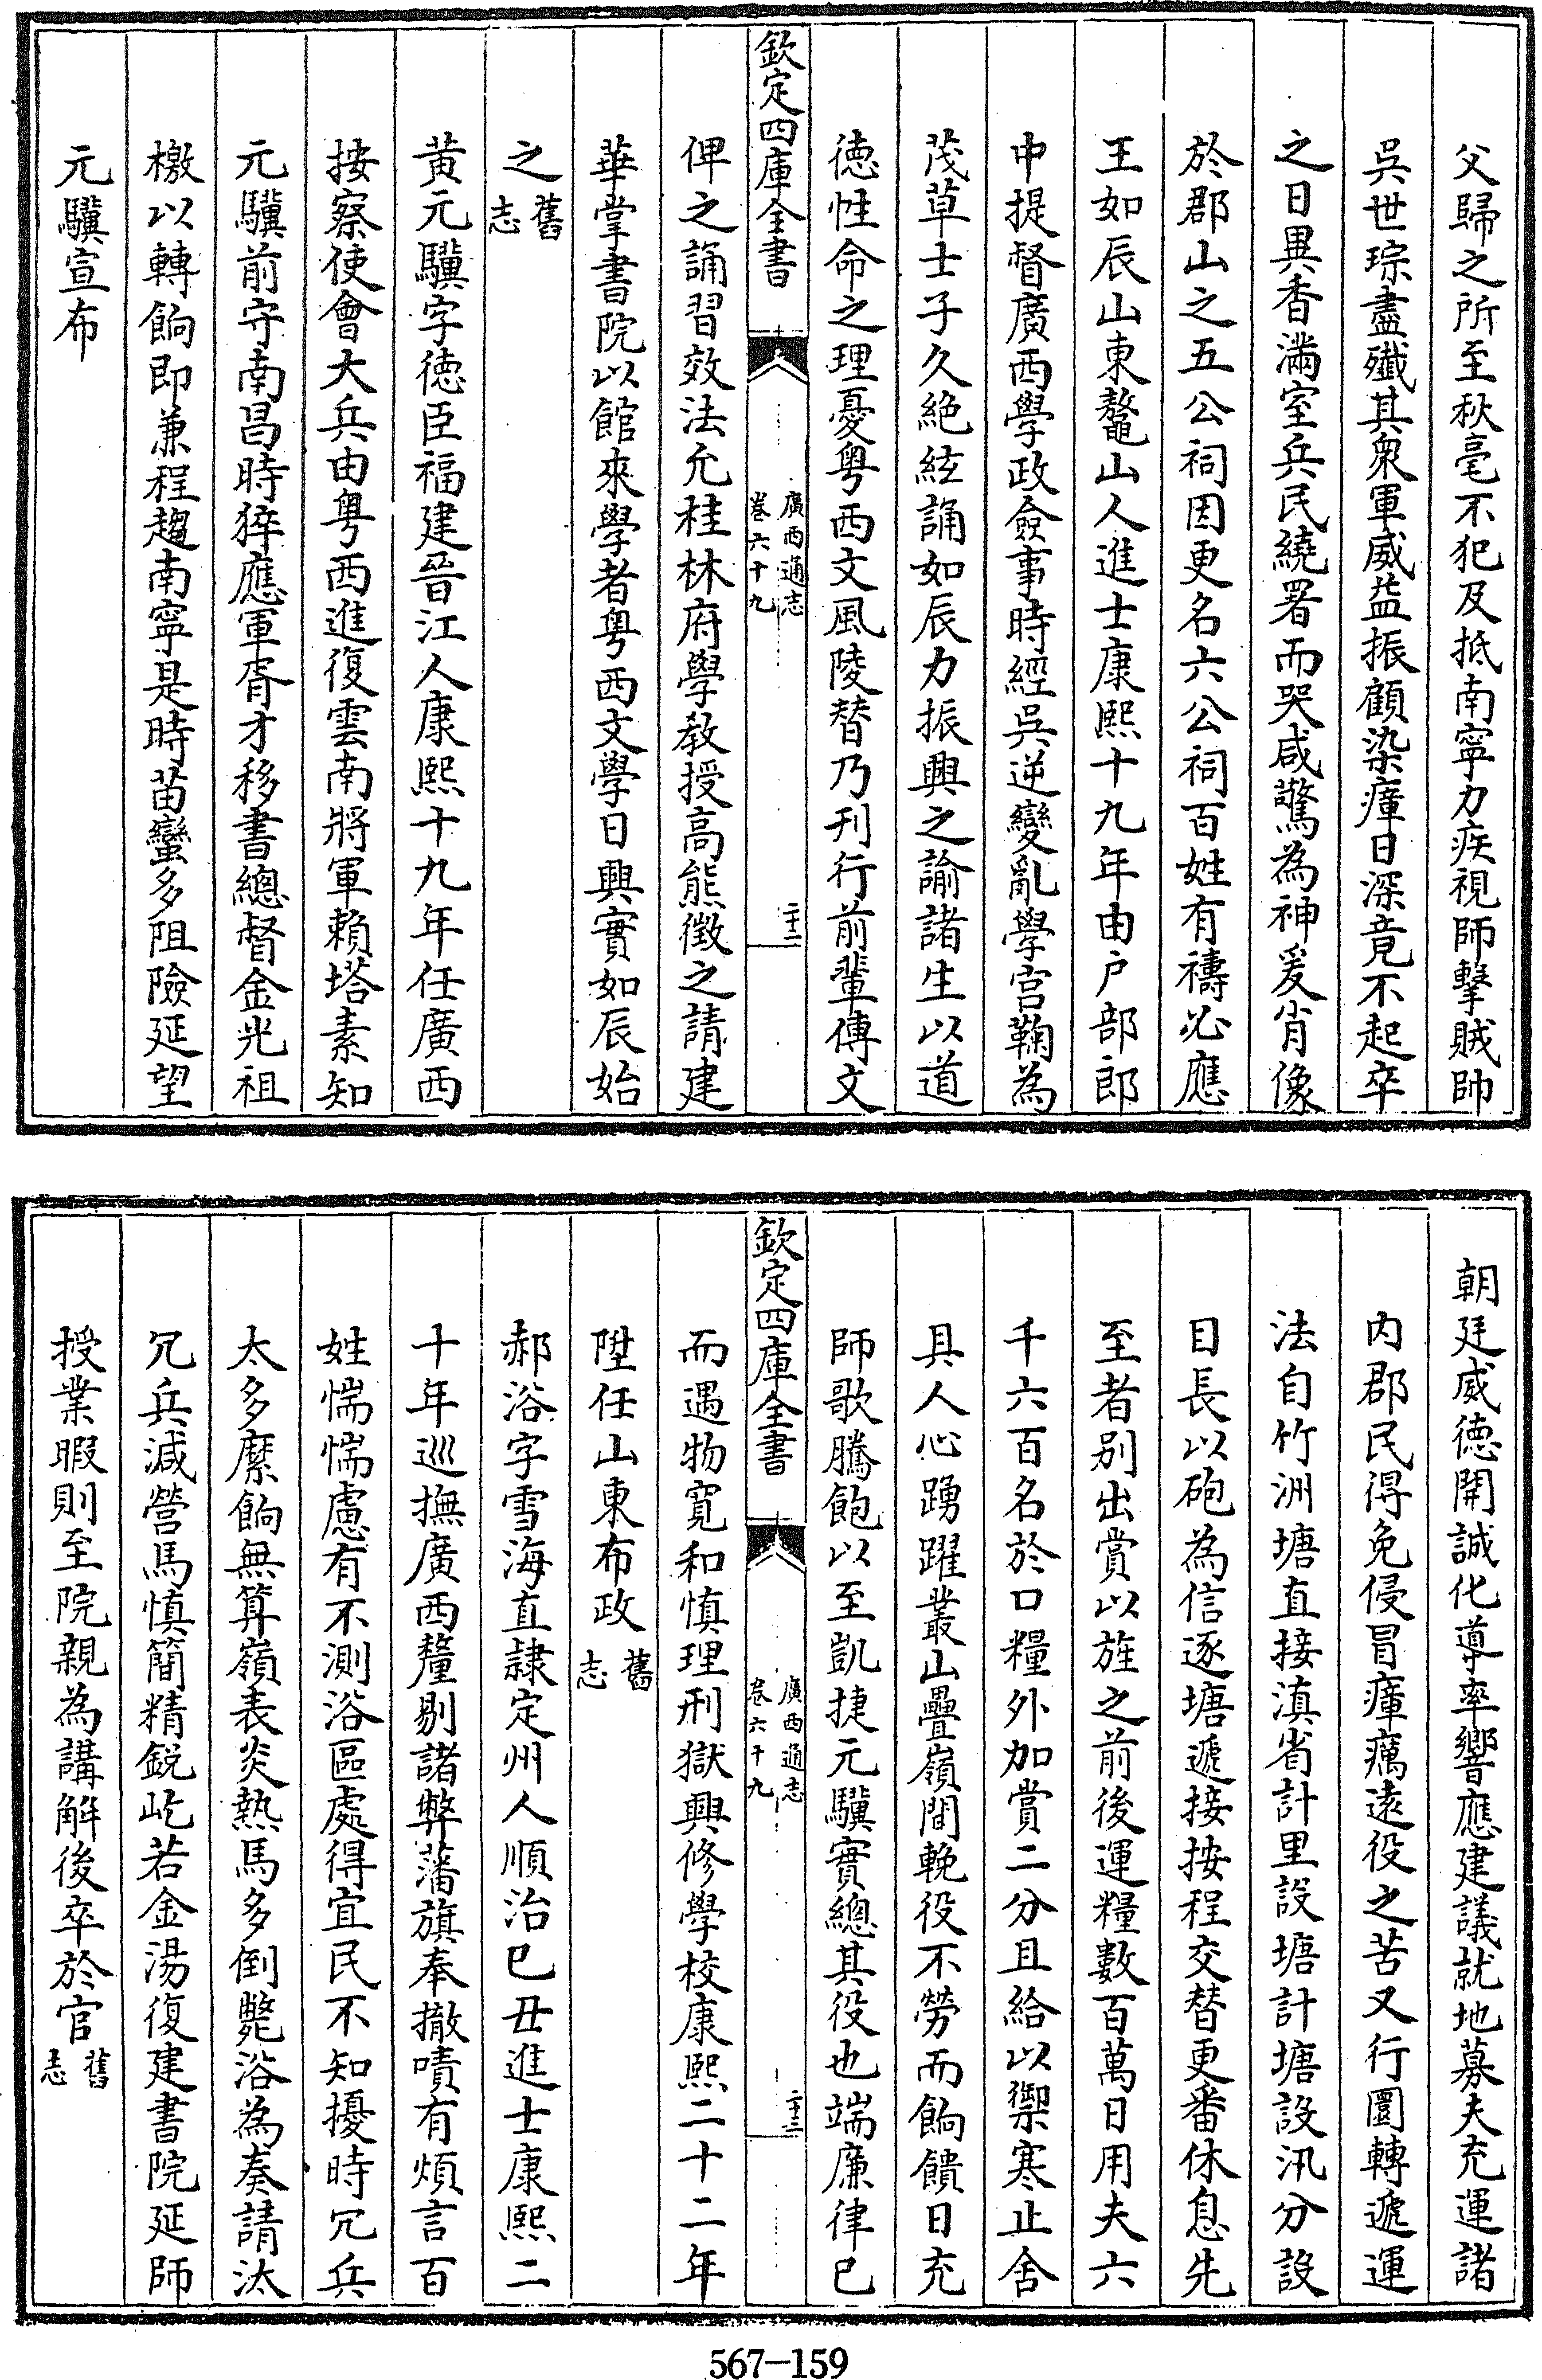 父歸之所至秋毫不犯及抵南寧力疾視師擊賊帥
吳世琮盡殲其衆軍威益振顧染瘴日深竟不起卒
之日異香滿室兵民繞署而哭咸驚為神爰肖像
於郡山之五公祠因更名六公祠百姓有禱必應
王如辰山東鼇山人進士康熙十九年由户部郎
中提督廣西學政僉事時經吳逆變亂學宫鞠為
茂草士子久絶絃誦如辰力振興之諭諸生以道
徳性命之理憂粤西文風陵替乃刋行前輩傳文
欽定四庫全書
廣西通志
卷六十九
二十二
俾之誦習效法允桂林府學教授高熊徴之請建
華掌書院以館來學者粤西文學日興實如辰始
之舊志
黄元驥字徳臣福建晉江人康熙十九年任廣西
按察使會大兵由粤西進復雲南將軍賴塔素知
元驥前守南昌時猝應軍胥才移書總督金光祖
檄以轉餉即兼程趨南寧是時苗蠻多阻險延望
元驥宣布
朝廷威徳開誠化導率響應建議就地募夫充運諸
内郡民得免侵冒瘴癘遠役之苦又行圜轉遞運
法自竹洲塘直接滇省計里設塘計塘設汛分設
目長以砲為信逐塘遞接按程交替更番休息先
至者别出賞以旌之前後運糧數百萬日用夫六
千六百名於口糧外加賞二分且給以禦寒止舍
具人心踴躍叢山疊嶺間輓役不勞而餉饋日充
師歌騰飽以至凱捷元驥實總其役也端亷律已
欽定四庫全書
廣西通志
卷六十九
二十三
而遇物寛和慎理刑獄興修學校康熙二十二年
陞任山東布政舊志
郝浴字雪海直隷定州人順治已丑進士康熙二
十年巡撫廣西釐剔諸弊藩旗奉撤嘖有煩言百
姓惴惴慮有不測浴區處得宜民不知擾時冗兵
太多縻餉無算嶺表炎熱馬多倒斃浴為奏請汰
冗兵減營馬慎簡精鋭屹若金湯復建書院延師
授業暇則至院親為講解後卒於官舊志
567-159